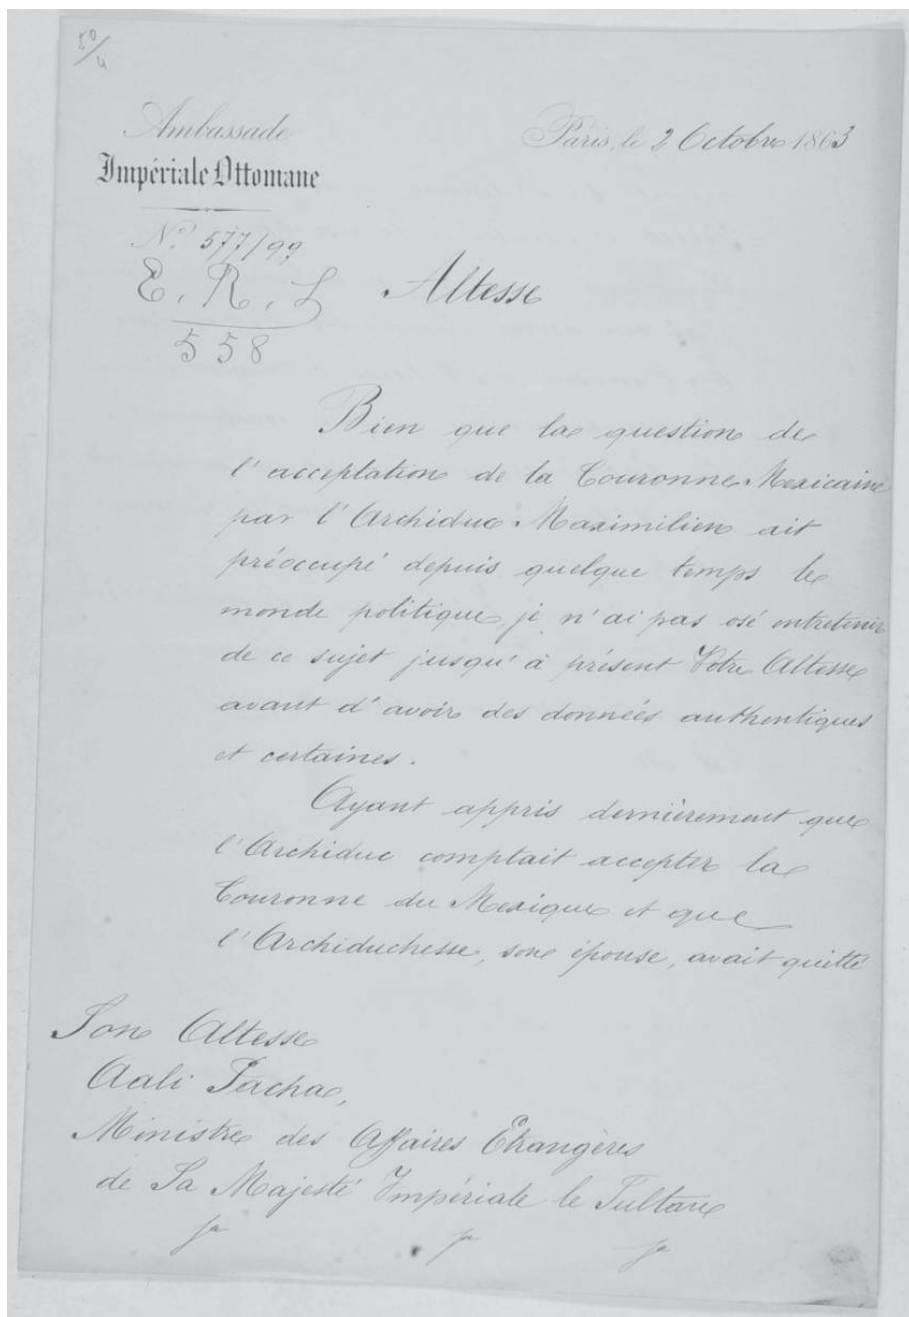 50/4
Ambassade
Impériale Ottomane
Paris, le 2 Octobre 1863
N° 577/99
E. R. L
558
Altesse
Bien que la question de
l'acceptation de la Couronne Mexicaine
par l'Archiduc Maximilien ait
préoccupé depuis quelque temps le
monde politique, je n'ai pas osé entretenir
de ce sujet jusqu'à présent Votre Altesse
avant d'avoir des données authentiques
et certaines.
Ayant appris dernièrement que
l'Archiduc comptait accepter la
Couronne du Mexique et que
l'Archiduchesse, son épouse, avait quitté
Son Altesse
Aali Pacha,
Ministre des Affaires Etrangères
de Sa Majesté Impériale le Sultan